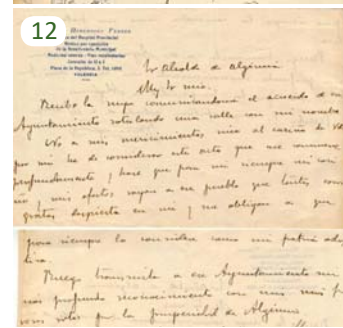 12
del Hospital Provincial
Médico por oposición
de la Beneficencia Municipal
Consulta de 12 a 2
VALENCIA
Sr Alcalde de Algimia
Muy Sr mio.
Recibo la suya comunicandome el acuerdo de ese
Ayuntamiento rotulando una calle con mi nombre
No a mis merecimientos, sino al cariño de Vds
por mi he de considerar este acto que me conmueve
profundamente y hace que para mi siempre mi
y mis afectos vayan a ese pueblo que tantos
gratos despierta en mi y me obligan a que
para siempre lo considere como mi patria adop
tiva.
Ruego transmita a ese Ayuntamiento mi
mas profundo reconocimiento con mis mas
votos por la prosperidad de Algimia